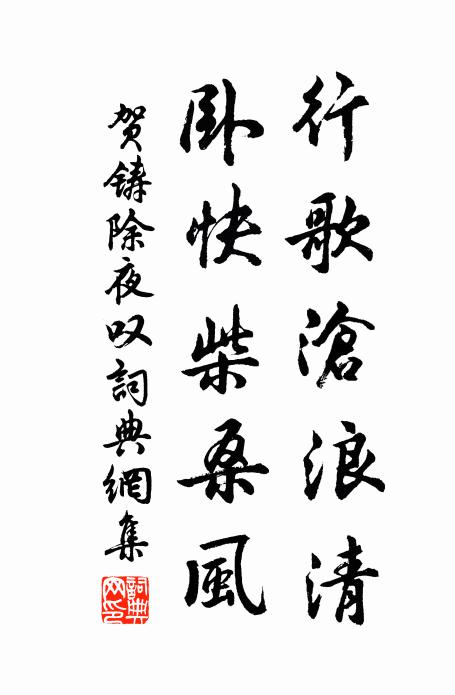 行歌滄浪清
卧快柴桑風
贺鑄除夜叹詞典網集
詞典網印